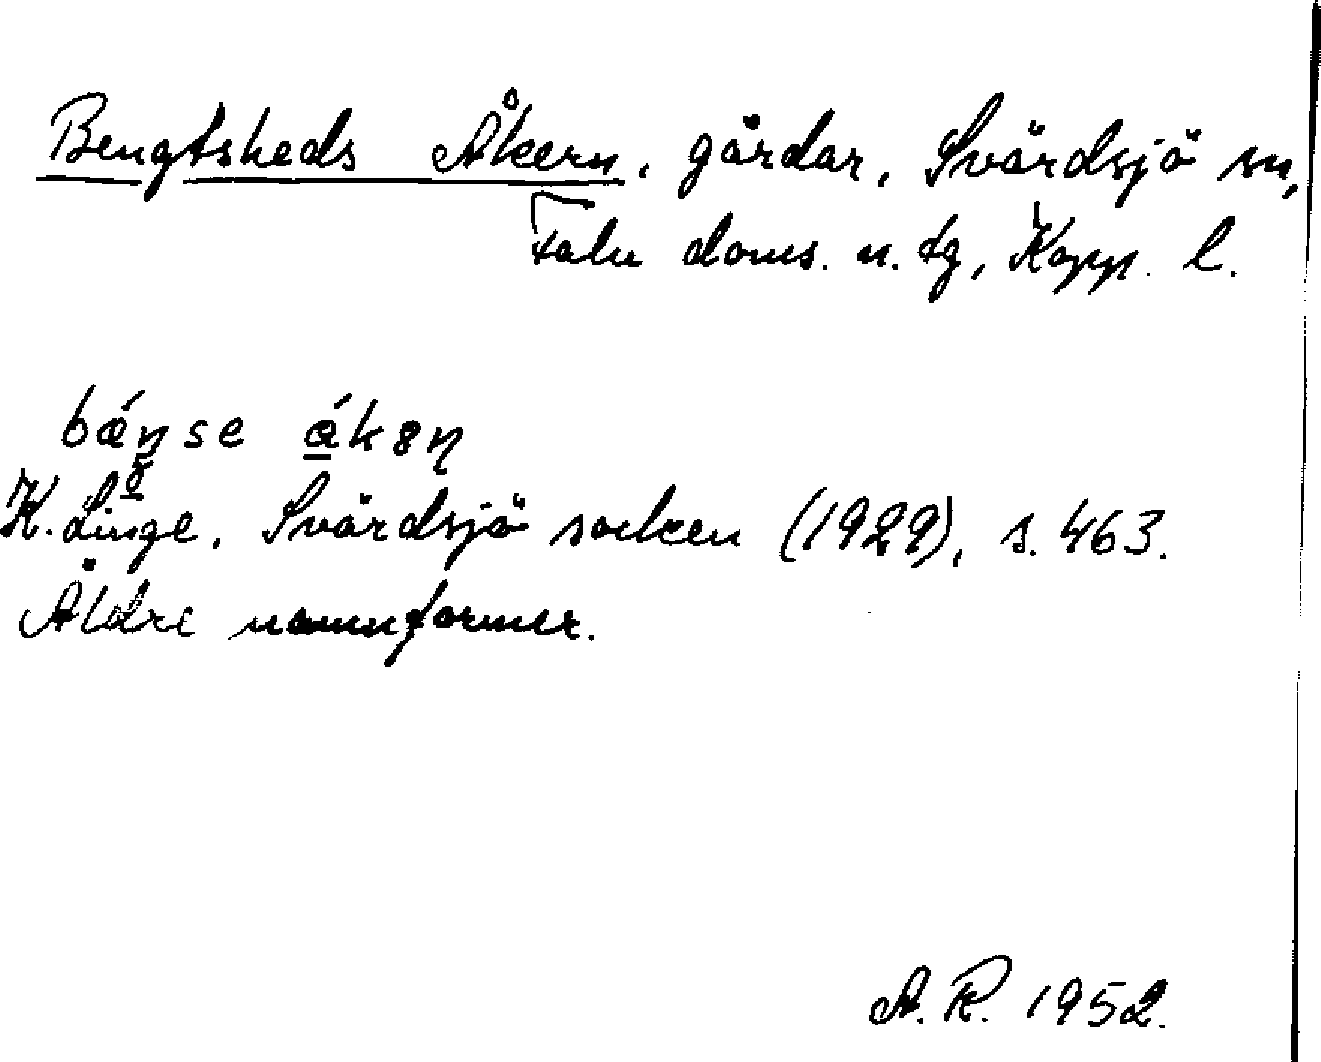 Bengtsheds Åkern, gårdar, Svärdsjö sn,
Falu doms. o. tg, Kopp. l.
bǽŋse ákəɳ
K. Linge, Svärdsjö socken (1929), s. 463.
Äldre namnformer.
A. R. 1952.